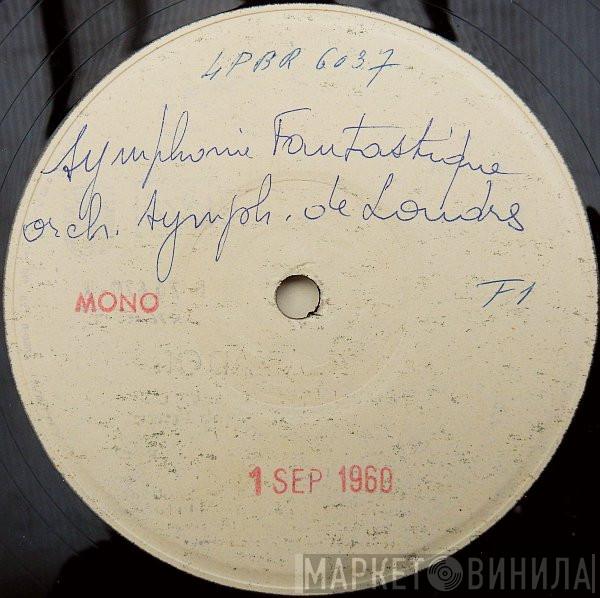 4PBR 6037
Symphonie Fantastique
orch. Symph. de Londres
MONO
F1
1 SEP 1960
МАРКЕТ ВИНИЛА